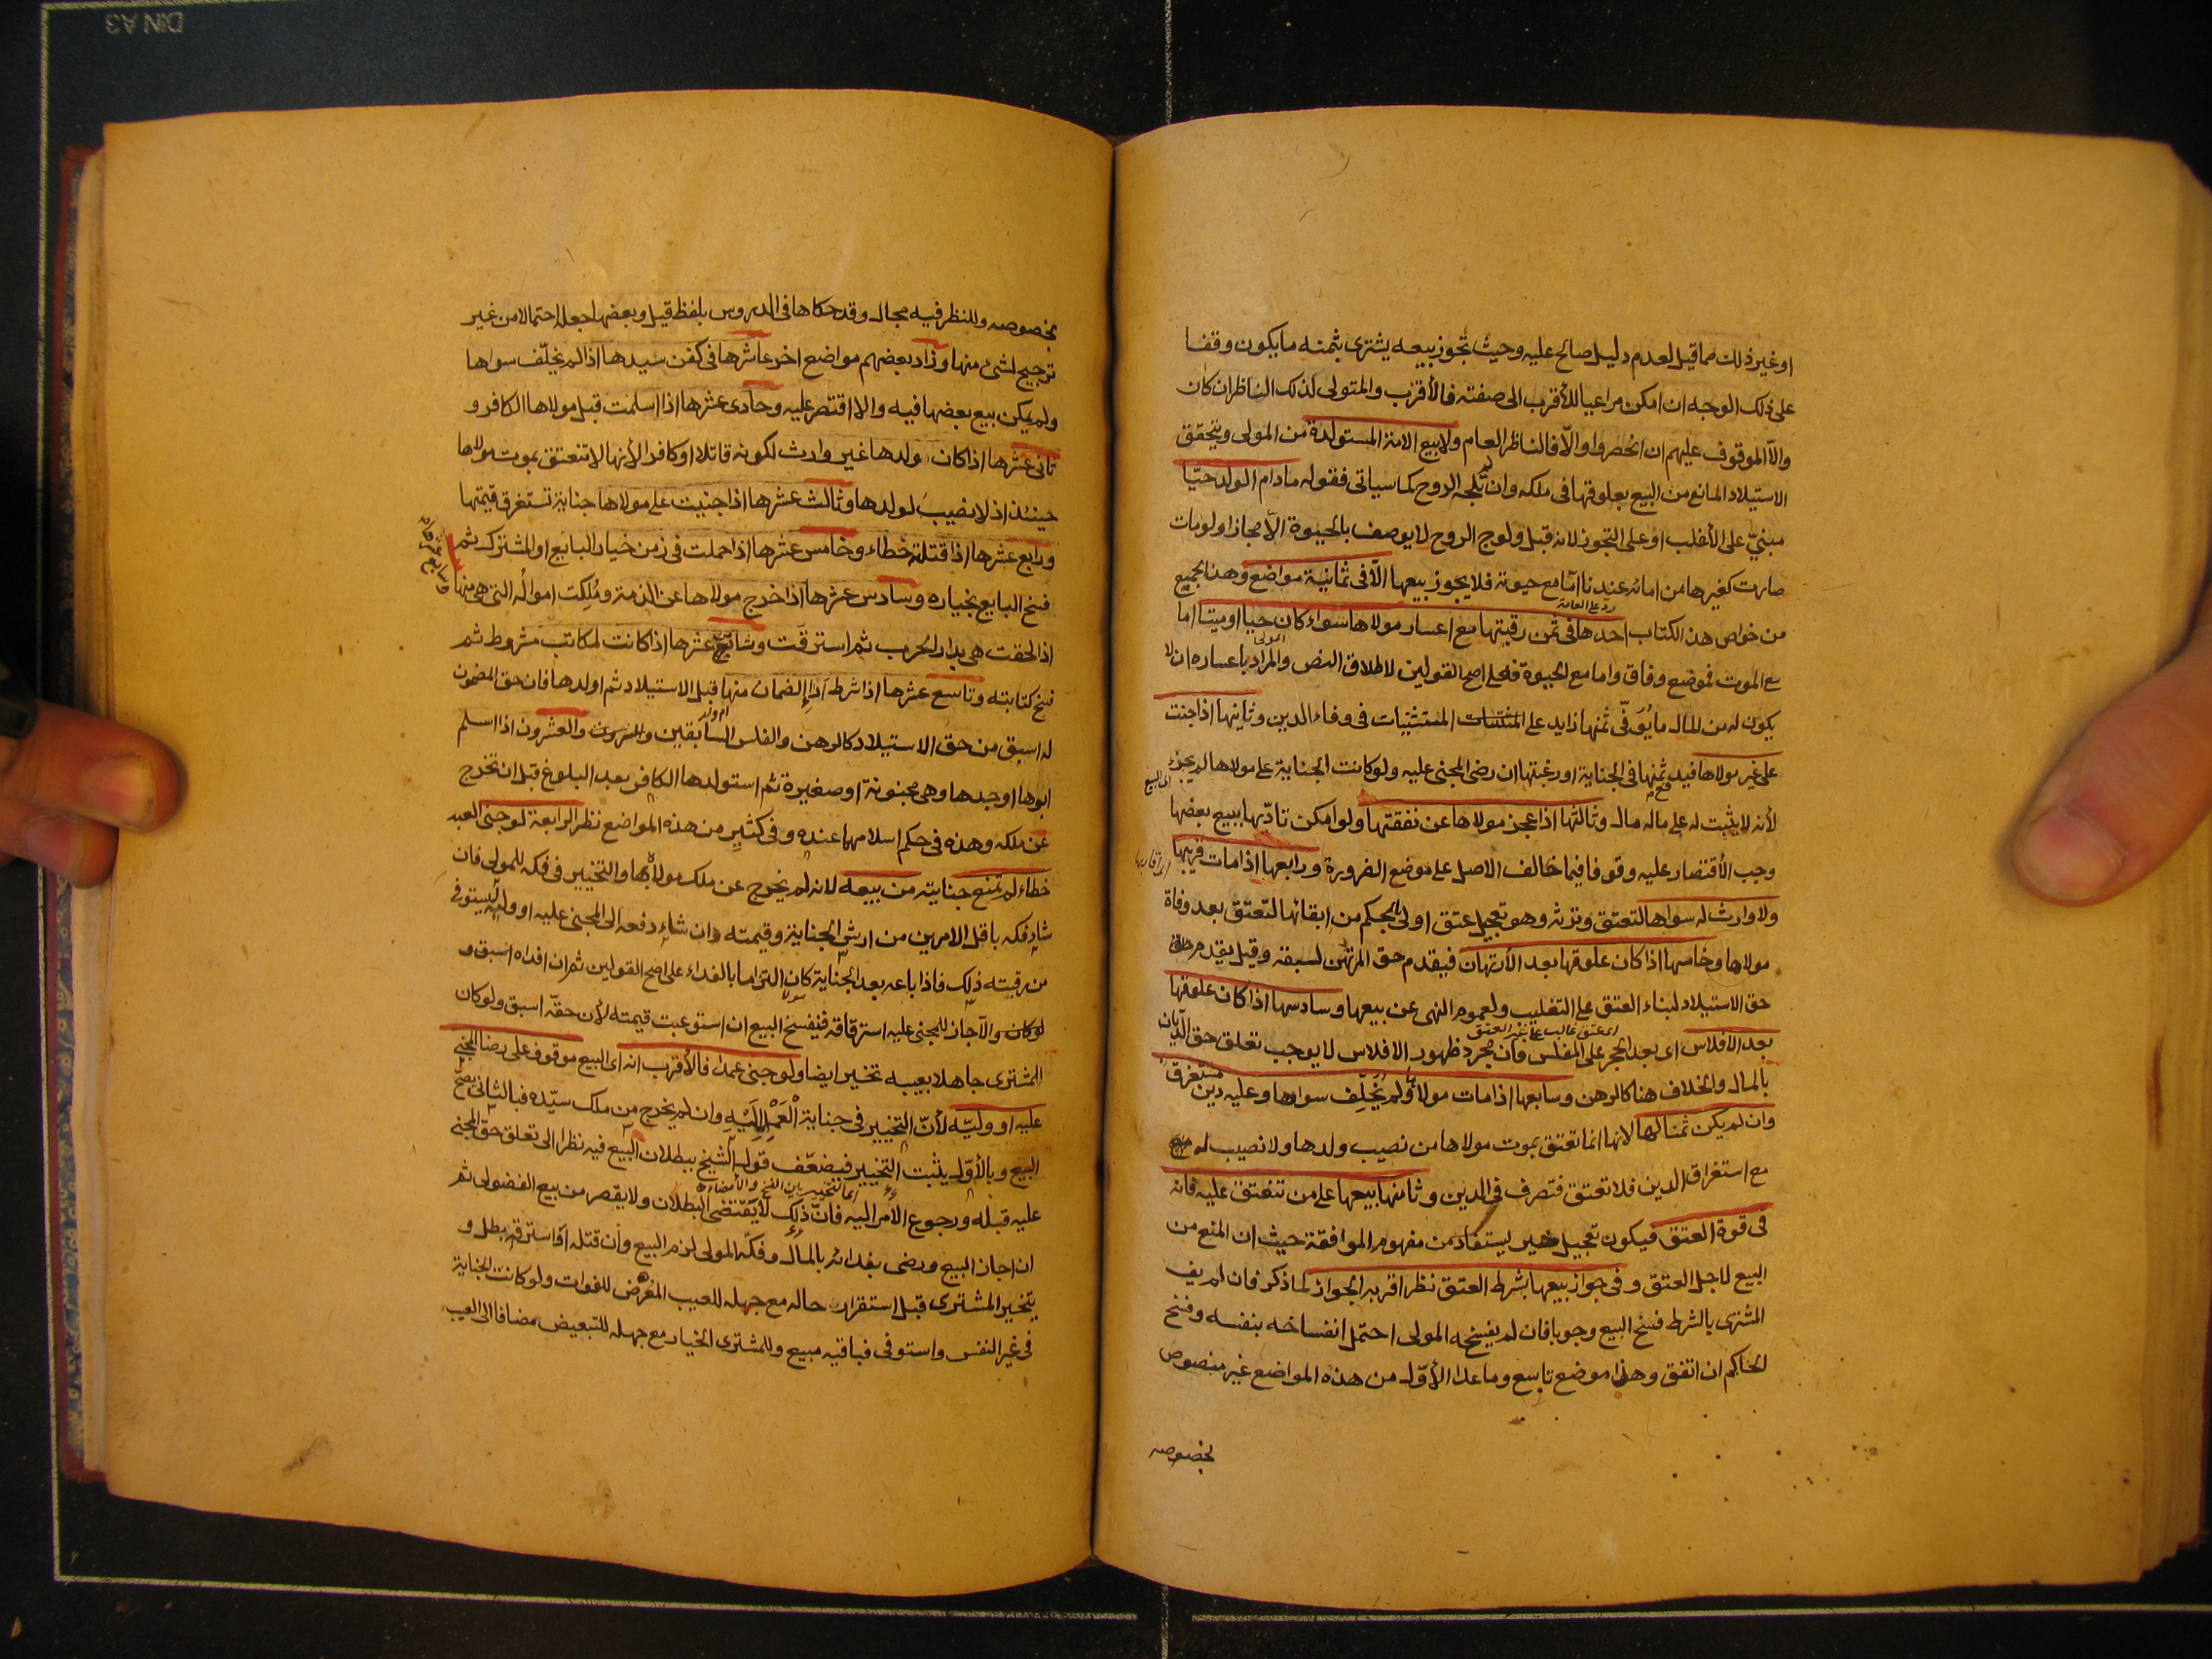 او غير ذلك مما قيل لعدم دليل صالح عليه وحيث تجوز بيعه يشترى بثمنه ما يكون وقفا
على ذلك الوجه ان امكن مراعيا للأقرب الى صفته فالأقرب والمتولى لذلك الناظر ان كان
والاّ الموقوف عليهم ان انحصروا والاّ فالناظر العام ولا بيع الامة المستولدة من المولى ويتحقق
الاستيلاد المانع من البيع بعلوقها فى ملكه وان لم تلجه الروح كما سياتى فقوله مادام الولد حيّا
مبنىّ على الأغلب او على التجوز لانه قبل ولوج الروح لا يوصف بالحيوة الاّ مجازا ولو مات
صارت كغيرها من امائه عندنا امّا مع حيوته فلا يجوز بيعها الاّ فى ثمانية مواضع وهذا الجميع
رد على العامة
من خواص هذا الكتاب احدها فى ثمن رقبتها مع اعسار مولاها سواء كان حيا او ميتا اما
المولى
مع الموت فموضع وفاق واما مع الحيوة فعلى اصح القولين لاطلاق النص والمراد باعساره ان لا
يكون له من المال ما يُوَفّى ثمنها زايد على المستثنيات فى وفاء الدين وثانيها اذا جنت
على غير مولاها فيدفع ثمنها فى الجناية او رقبتها ان رضى المجنى عليه ولو كانت الجناية على مولاها لم يجزء
اى البيع
لأنه لا يثبت له على ماله مال وثالثها اذا عجز مولاها عن نفقتها ولو امكن تادّيها ببيع بعضها
وجب الأقتصار عليه وقوفا فيما خالف الاصل على موضع الضرورة ورابعها اذا مات قريبها
اى اقاربها
ولا وارث له سواها لتعتق وترثه وهو تعجيل عتق اولى بالحكم من ابقائها لتعتق بعد وفاة
مولاها وخامسها اذا كان علوقها بعد الأرتهان فيقدم حق المرتهن لسبقه وقيل يقدم
حق الاستيلاد لبناء العتق على التغليب ولعموم النهى عن بيعها وسادسها اذا كان علوقها
اى عتق غالب على غير العتق
بعد الافلاس اى بعد الحجر على المفلس فان مجرد ظهور الافلاس لا يوجب تعلق حق الديان
بالمال والخلاف هنا كالرهن وسابعها اذا مات مولاها ولم يُخَلِّف سواها وعليه دين مستغرق
وان لم يكن ثمنا لها لانها انما تعتق بموت مولاها من نصيب ولدها ولا نصيب له
مع استغراق الدين فلا تعتق فتصرف فى الدين وثامنها بيعها على من تنعتق عليه فانه
فى قوة العتق فيكون تعجيل خير يستفاد من مفهوم الموافقة حيث ان المنع من
البيع لاجل العتق وفى جواز بيعها بشرط العتق نظر اقربه الجواز لما ذكر فان لم يف
المشترى بالشرط فسخ البيع وجوبا فان لم يفسخه المولى احتمل انفساخه بنفسه وفسخ
الحاكم ان اتفق وهذا موضع تاسع وما عدا الأوّل من هذه المواضع غير منصوص
بخصوصه
بخصوصه وللنظر فيه مجال وقد حكاها فى الدروس بلفظ قيل وبعضها جعله احتمالا من غير
ترجيح لشئ منها وزاد بعضهم مواضع اخر عاشرها فى كفن سيدها اذا لم يخلّف سواها
ولم يمكن بيع بعضها فيه والا اقتصر عليه وحادى عشرها اذا اسلمت قبل مولاها الكافر و
ثانى عشرها اذا كان ولدها غير وارث لكونه قاتلا او كافرا لأنها لا تنعتق بموت مولاها
حينئذ اذ لا نصيب لولدها وثالث عشرها اذا جنيت على مولاها جناية تستغرق قيمتها
ورابع عشرها اذا قتلته خطاء وخامس عشرها اذا حملت فى زمن خيار البايع او المشترك ثم
فسخ البايع بخياره وسادس عشرها اذا خرج مولاها عن الذمة ومُلِكت امواله التى هى منها
اذا لحقت هى بدار الحرب ثم استرقّت وثامن عشرها اذا كانت لمكاتب مشروط ثم
فسخ كتابته وتاسع عشرها اذا شرط اداء الضمان منها قبل الاستيلاد ثم اولدها فان حق المضمون
له اسبق من حق الاستيلاد كالرهن والفلس السابقين والعشرون اذا اسلم
ام ولد
ابوها او جدها وهى مجنونة او صغيرة ثم استولدها الكافر بعد البلوغ قبل ان تخرج
عن ملكه وهذه فى حكم اسلامها عنده وفى كثير من هذه المواضع نظر الرابعة لو جنى العبد
خطاء لم تمنع جنايته من بيعه لانه لم يخرج عن ملك مولاه بها والتخيير فى فكه للمولى فان
شاء فكه باقل الامرين من ارش الجناية وقيمته وان شاء دفعه الى المجنى عليه او وليّه ليستوفى
من رقبته ذلك فاذا باعه بعد الجناية كان التزاما بالفداء على اصح القولين ثم ان افداه
والاّ جاز للمجنى عليه استرقاقه فينفسخ البيع ان استوعبت قيمته لأن حقه اسبق ولو كان
المشترى جاهلا بعيبه تخير ايضا ولو جنى عمدا فالأقرب انه اى البيع موقوف على رضا المجنى
عليه او وليّه لأنّ التخيير فى جناية العَمْدِ اِلَيْهِ وان لم يخرج من ملك سيّده فبالثانى يصحّ
البيع وبالأوّل يثبت التخيير فيضعّف قول الشيخ ببطلان البيع فيه نظرا الى تعلق حق المجنى
اى التخيير بين الفسخ والأمضاء
عليه قبله ورجوع الأمر اليه فانّ ذلك لا يقتضى البطلان ولا يقصر من بيع الفضولى ثم
ان اجاز البيع ورضى بفدائه بالمال وفكّه المولى لزم البيع وان قتله او استرقه بطل و
يتخير المشترى قبل استقرار حاله مع جهله للعيب المُعَرِّض للفوات ولو كانت الجناية
فى غير النفس واستوفى فباقيه مبيع وللمشترى الخيار مع جهله للتبعيض مضافا الى العيب